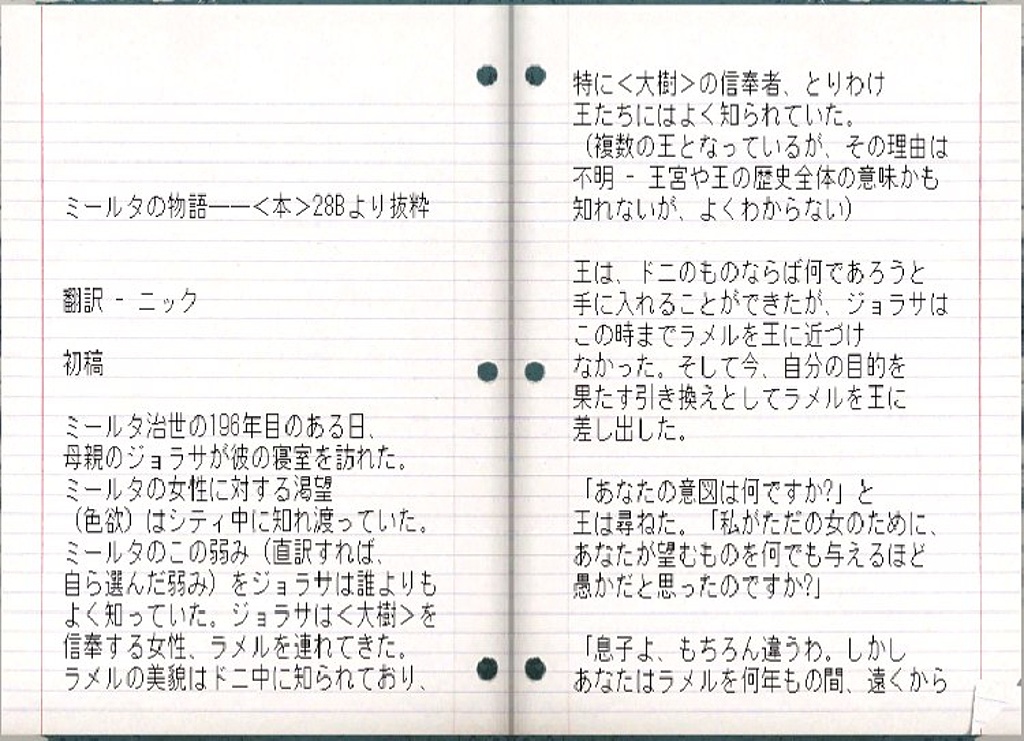 ミールタの物語――＜本＞28Bより抜粋
翻訳 - ニック
初稿
ミールタ治世の196年目のある日、
母親のジョラサが彼の寝室を訪れた。
ミールタの女性に対する渇望
（色欲）はシティ中に知れ渡っていた。
ミールタのこの弱み（直訳すれば、
自ら選んだ弱み）をジョラサは誰よりも
よく知っていた。ジョラサは＜大樹＞を
信奉する女性、ラメルを連れてきた。
ラメルの美貌はドニ中に知られており、
特に＜大樹＞の信奉者、とりわけ
王たちにはよく知られていた。
（複数の王となっているが、その理由は
不明 - 王宮や王の歴史全体の意味かも
知れないが、よくわからない）
王は、ドニのものならば何であろうと
手に入れることができたが、ジョラサは
この時までラメルを王に近づけ
なかった。そして今、自分の目的を
果たす引き換えとしてラメルを王に
差し出した。
「あなたの意図は何ですか?」と
王は尋ねた。「私がただの女のために、
あなたが望むものを何でも与えるほど
愚かだと思ったのですか?」
「息子よ、もちろん違うわ。しかし
あなたはラメルを何年もの間、遠くから